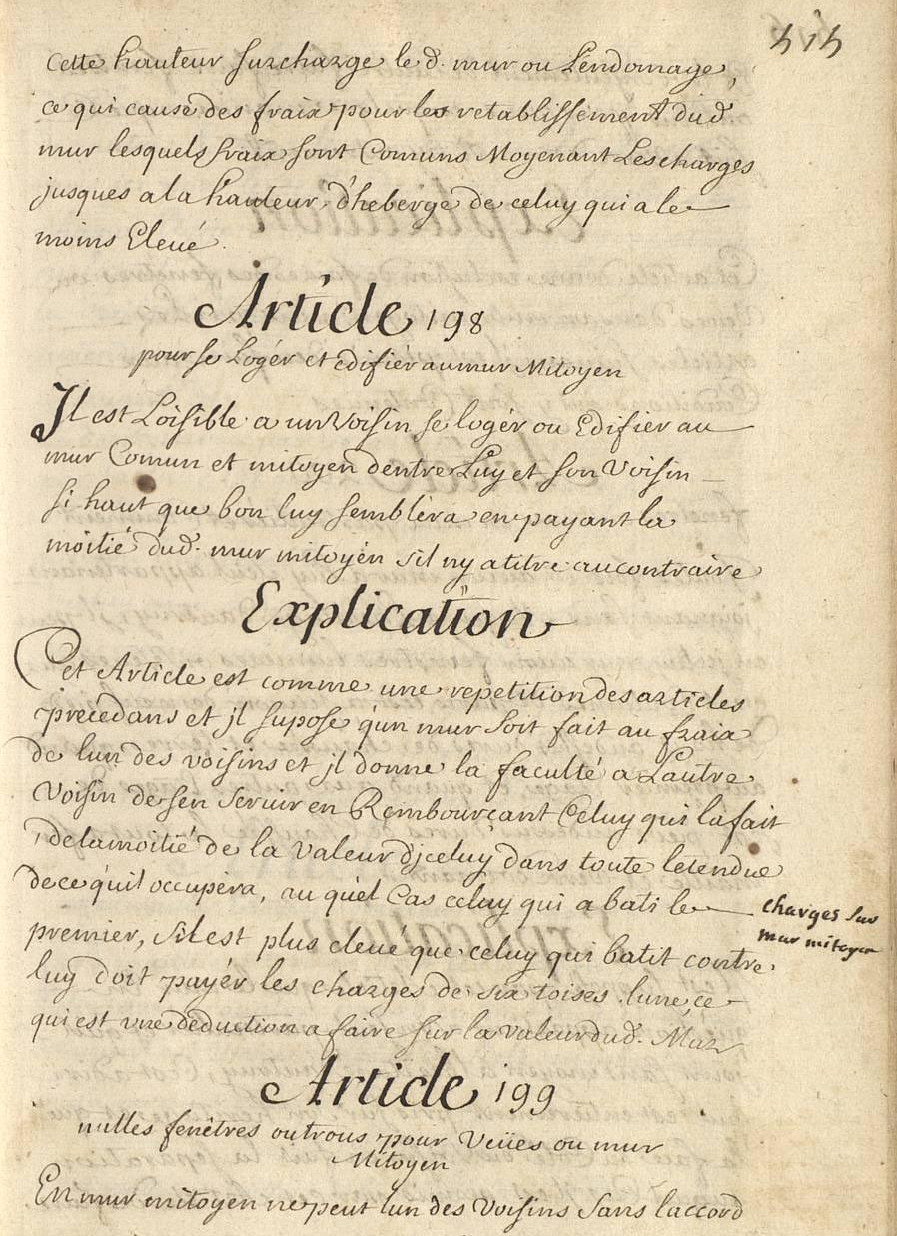 515
cette hauteur surcharge le d. mur ou Lendomage,
ce qui cause des fraix pour les retablissement dud.
mur lesquels fraix sont Comuns Moyenant Les charges
jusques a la hauteur d'heberge de celuy qui a le
moins Elevé.
Article 198
pour se Logér et edifiér au mur Mitoyen
Il est Loisible a un Voisin se logér ou Edifiér au
mur Comun et mitoyen dentre Luy et son Voisin
si haut que bon luy semblera en payant la
moitié dud. mur mitoyén sil ny a titre au contraire
Explication
Cet Article est comme une repetition des articles
precedans et jl supose qun mur soit fait au fraix
de lun des voisins et jl donne la faculté a Lautre
Voisin de sen servir en Rembourçant Celuy qui la fait
de la moitié de la Valeur djceluy dans toute letendue
de ce quil occupéra, au quel Cas celuy qui a bati le
charges sur
mur mitoyen
premier, sil est plus elevé que celuy qui batit contre
luy doit payér les charges de six toises lune, ce
qui est une deduction a faire sur la valeur dud. Mur
Article 199
nulles fenêtres ou trous pour Veües ou mur
Mitoyen
En mur mitoyen ne peut lun des Voisins Sans laccord